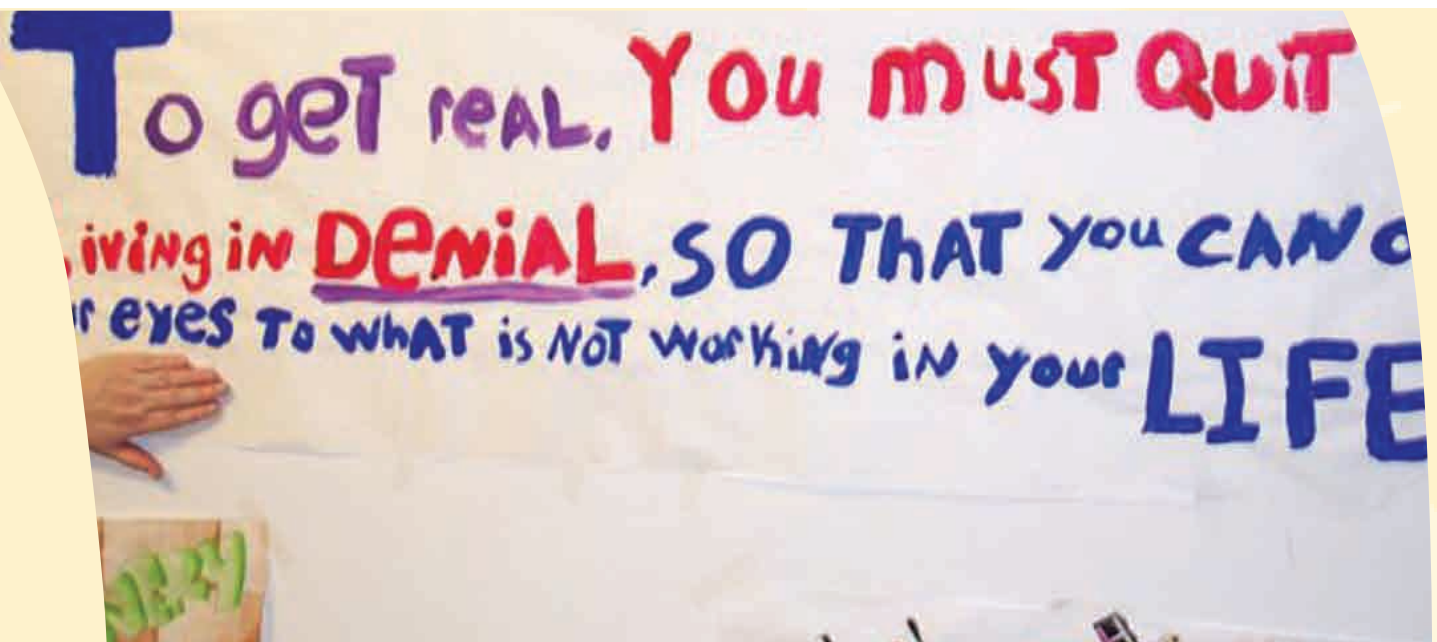 To get real. You must Quit
iving in Denial, so that you can
eyes to what is not working in your LIFE